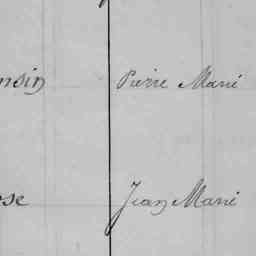 nsin Pierre Marie
ose Jean Marie